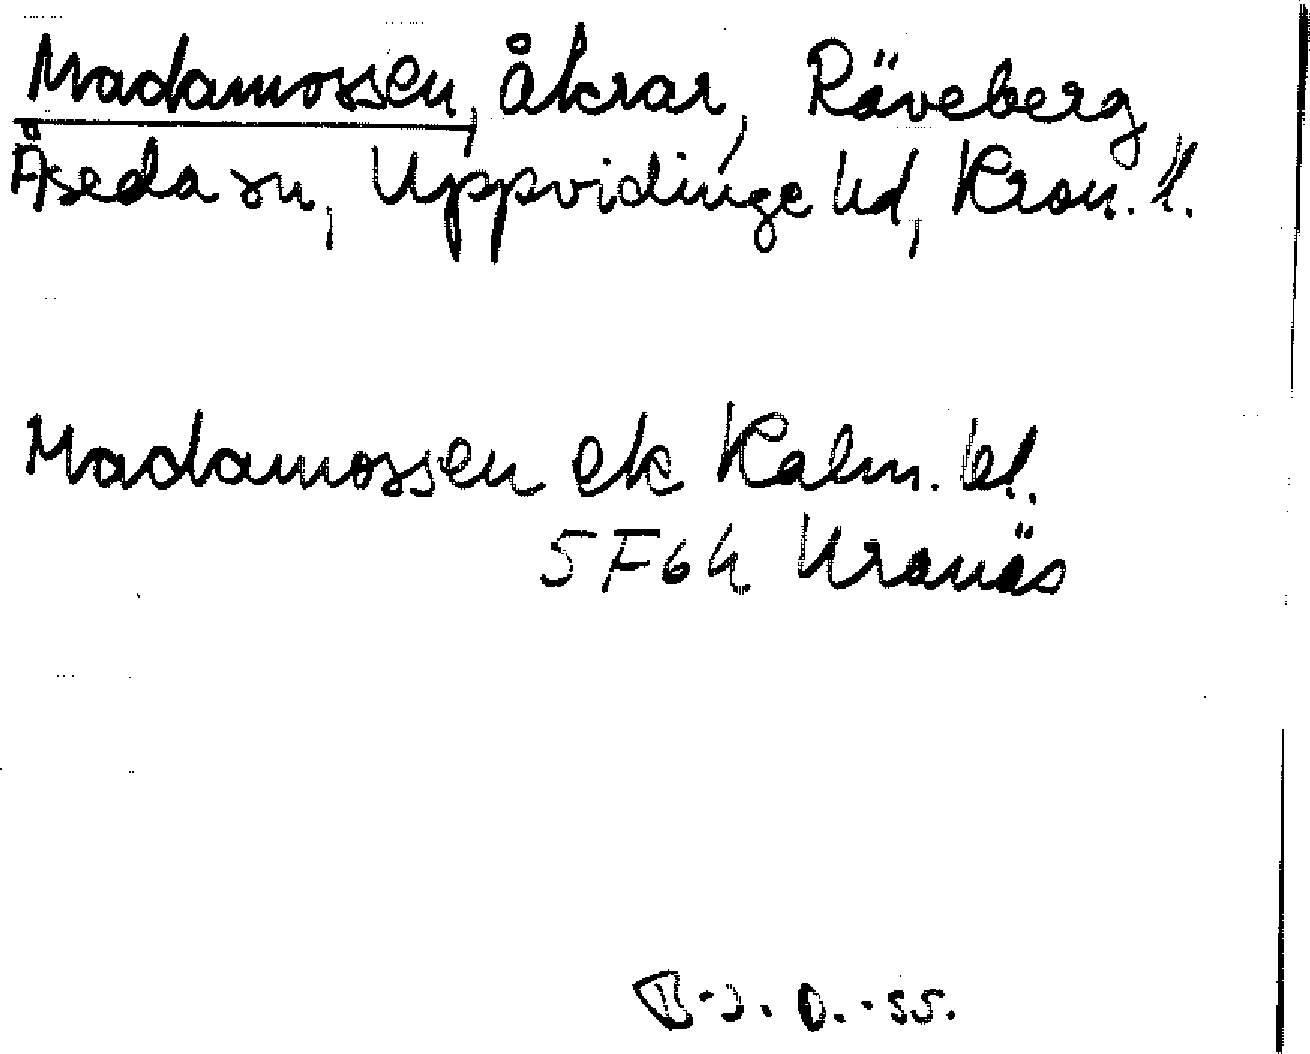 Madamossen, åkrar, Räveberg,
Åseda sn, Uppvidinge hd, Kron. l.
Madamossen ek Kalm. bl.
5F6h Kranäs
B-J. O. -55.